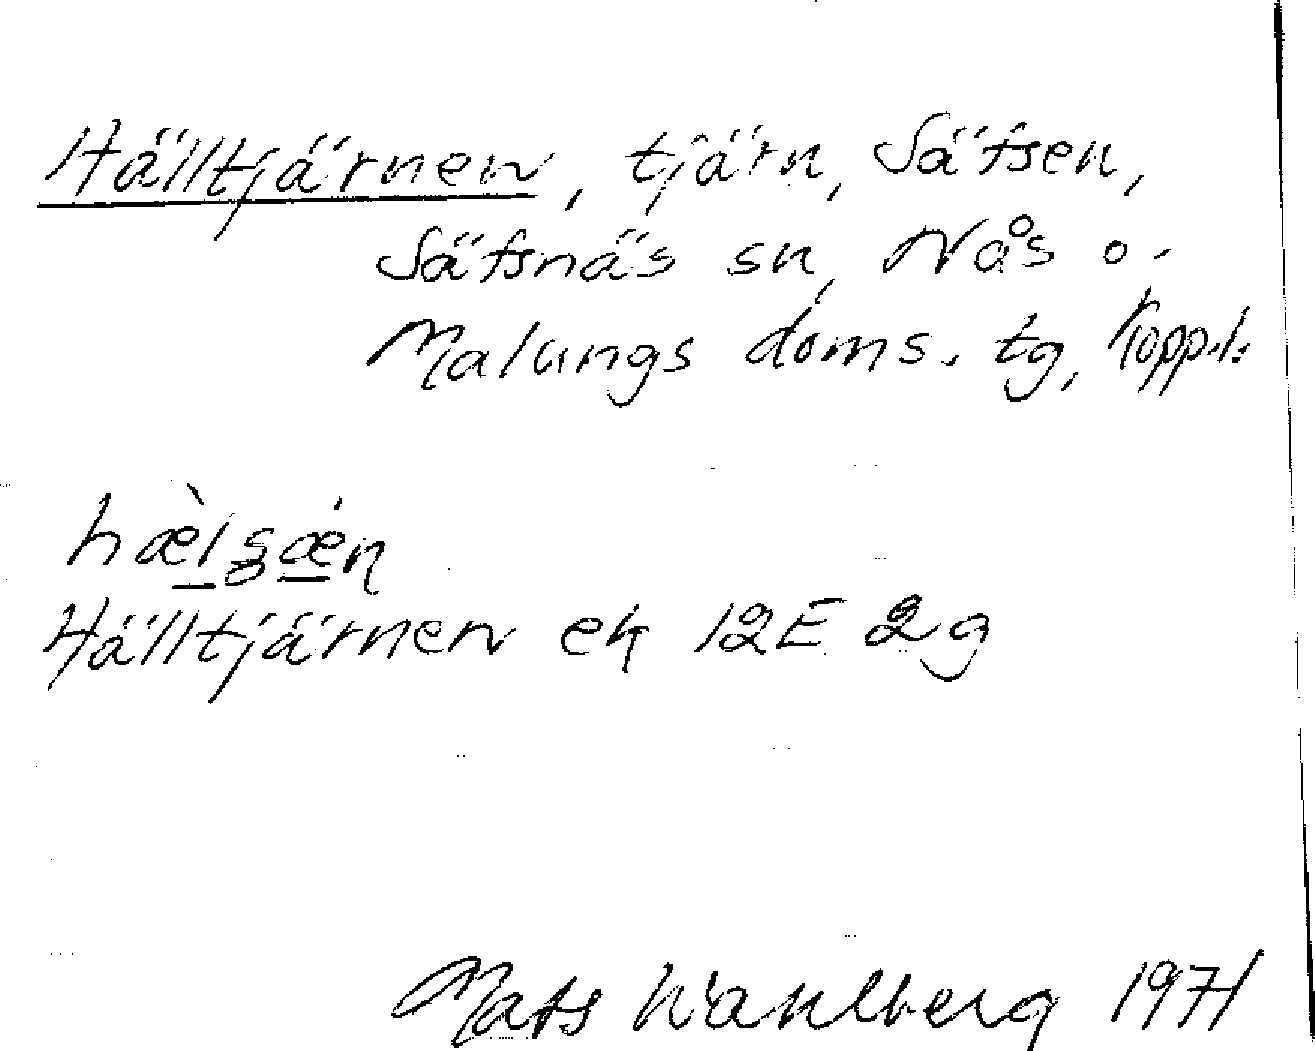 Hälltjärnen, tjärn, Säfsen,
Säfsnäs sn, Nås o.
Malungs doms. tg, Kopp.l.
Hälltjärnen ek 12E 2g
Mats Wahlberg 1971